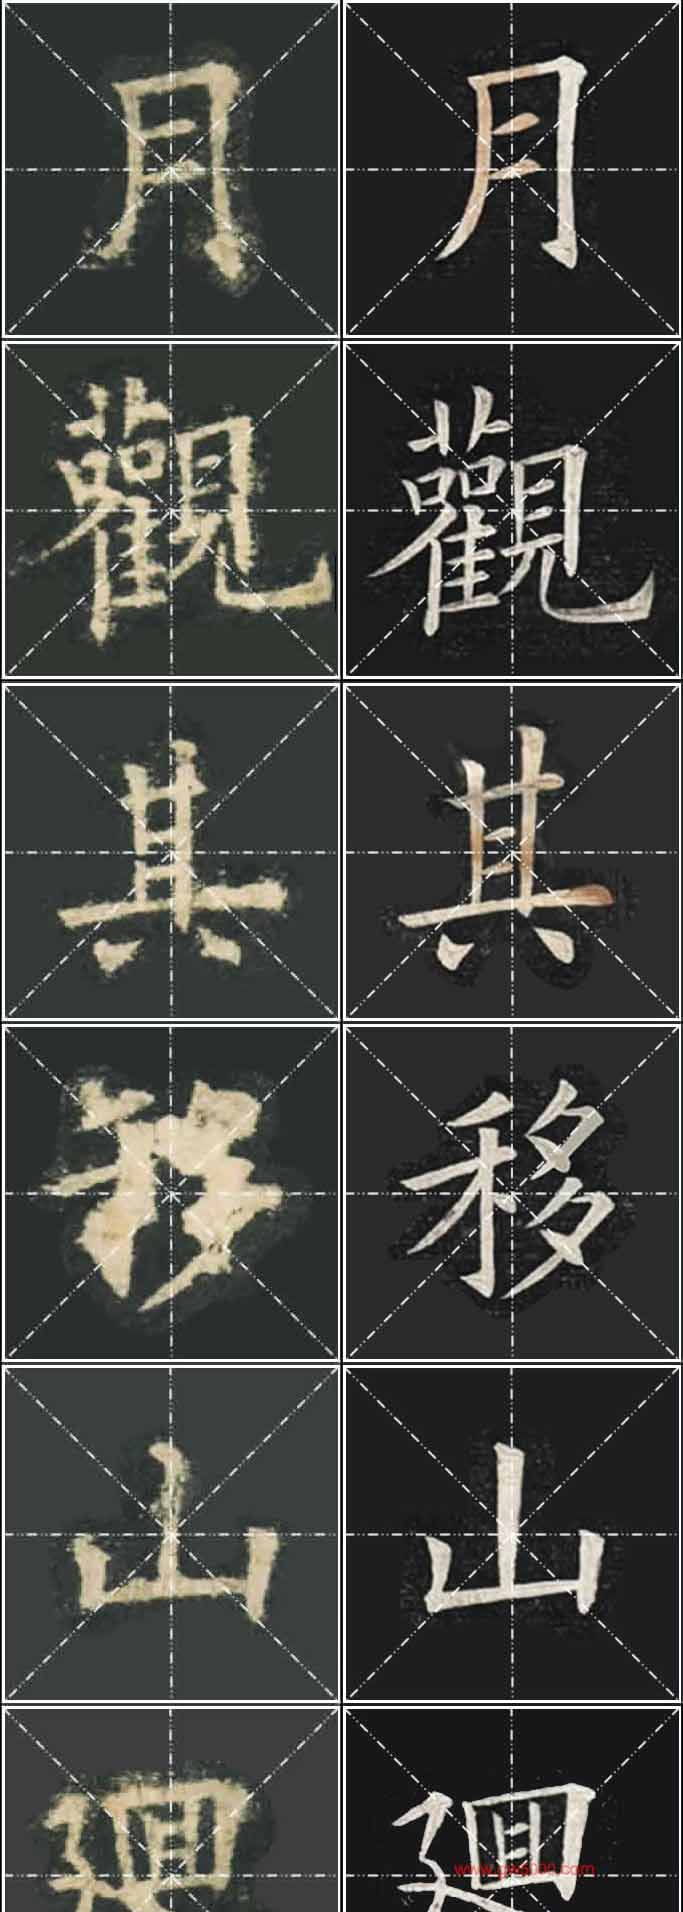 月 月
觀 觀
其 其
移 移
山 山
迴 迴
www.gx6000.com